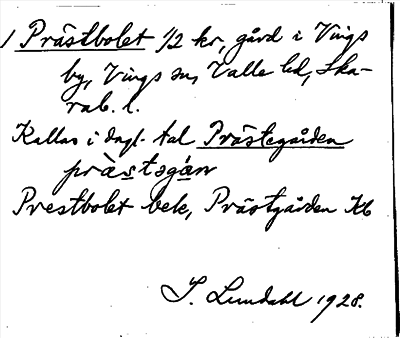 1 Prästbolet 1/2 kr, gård i Vings
by, Vings sn, Valle hd, Ska-
rab. l.
Kallas i dagl. tal Prästegården
præ̀stsgán
Prestbolet bek, Prästgården Kb
I. Lundahl 1928.